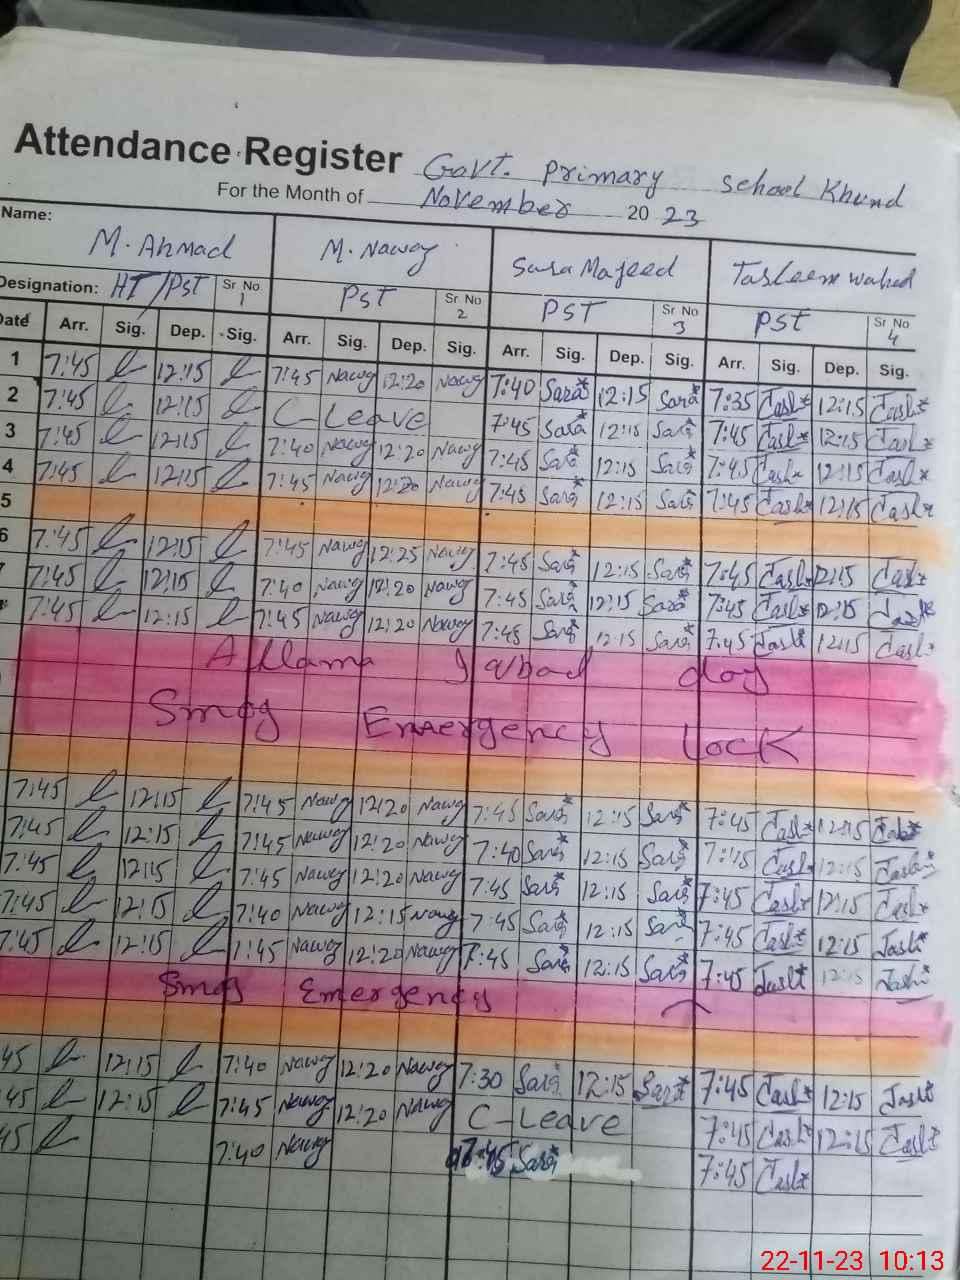 Attendance Register Govt. Primary School Khund
For the Month of November 2023
Name: M. Ahmad M. Nawaz Sara Majeed Tasleem wahed
Designation: HT/PST Sr No 1 PST Sr No 2 PST Sr No 3 PST Sr No 4
Date Arr. Sig. Dep. Sig. Arr. Sig. Dep. Sig. Arr. Sig. Dep. Sig. Arr. Sig. Dep. Sig.
1 7:45 12:15 7:45 Nawaz 12:20 Nawaz 7:40 Sara 12:15 Sara 7:35 12:15
2 7:45 12:15 C Leave 7:45 Sara 12:15 Sara 7:45 12:15
3 7:45 12:15 7:40 Nawaz 12:20 Nawaz 7:45 Sara 12:15 Sara 7:45 12:15
4 7:45 12:15 7:45 Nawaz 12:20 Nawaz 7:45 Sara 12:15 Sara 7:45 12:15
5
6 7:45 12:15 7:45 Nawaz 12:25 Nawaz 7:45 Sara 12:15 Sara 7:45 12:15
7:45 12:15 7:40 Nawaz 12:20 Nawaz 7:45 Sara 12:15 Sara 7:45 12:15
7:45 12:15 7:45 Nawaz 12:20 Nawaz 7:45 Sara 12:15 Sara 7:45 12:15
Allama Iqbal day
Smog Emergency Lock
7:45 12:15 7:45 Nawaz 12:20 Nawaz 7:45 Sara 12:15 Sara 7:45 12:15
7:45 12:15 7:45 Nawaz 12:20 Nawaz 7:40 Sara 12:15 Sara 7:45 12:15
7:45 12:15 7:45 Nawaz 12:20 Nawaz 7:45 Sara 12:15 Sara 7:45 12:15
7:45 12:15 7:40 Nawaz 12:15 Nawaz 7:45 Sara 12:15 Sara 7:45 12:15
7:45 12:15 7:45 Nawaz 12:20 Nawaz 7:45 Sara 12:15 Sara 7:45 12:15
Smog Emergency
45 12:15 7:40 Nawaz 12:20 Nawaz 7:30 Sara 12:15 Sara 7:45 12:15
45 12:15 7:45 Nawaz 12:20 Nawaz C-Leave 7:45 12:15
45 7:40 Nawaz 7:45 Sara 7:45
22-11-23 10:13